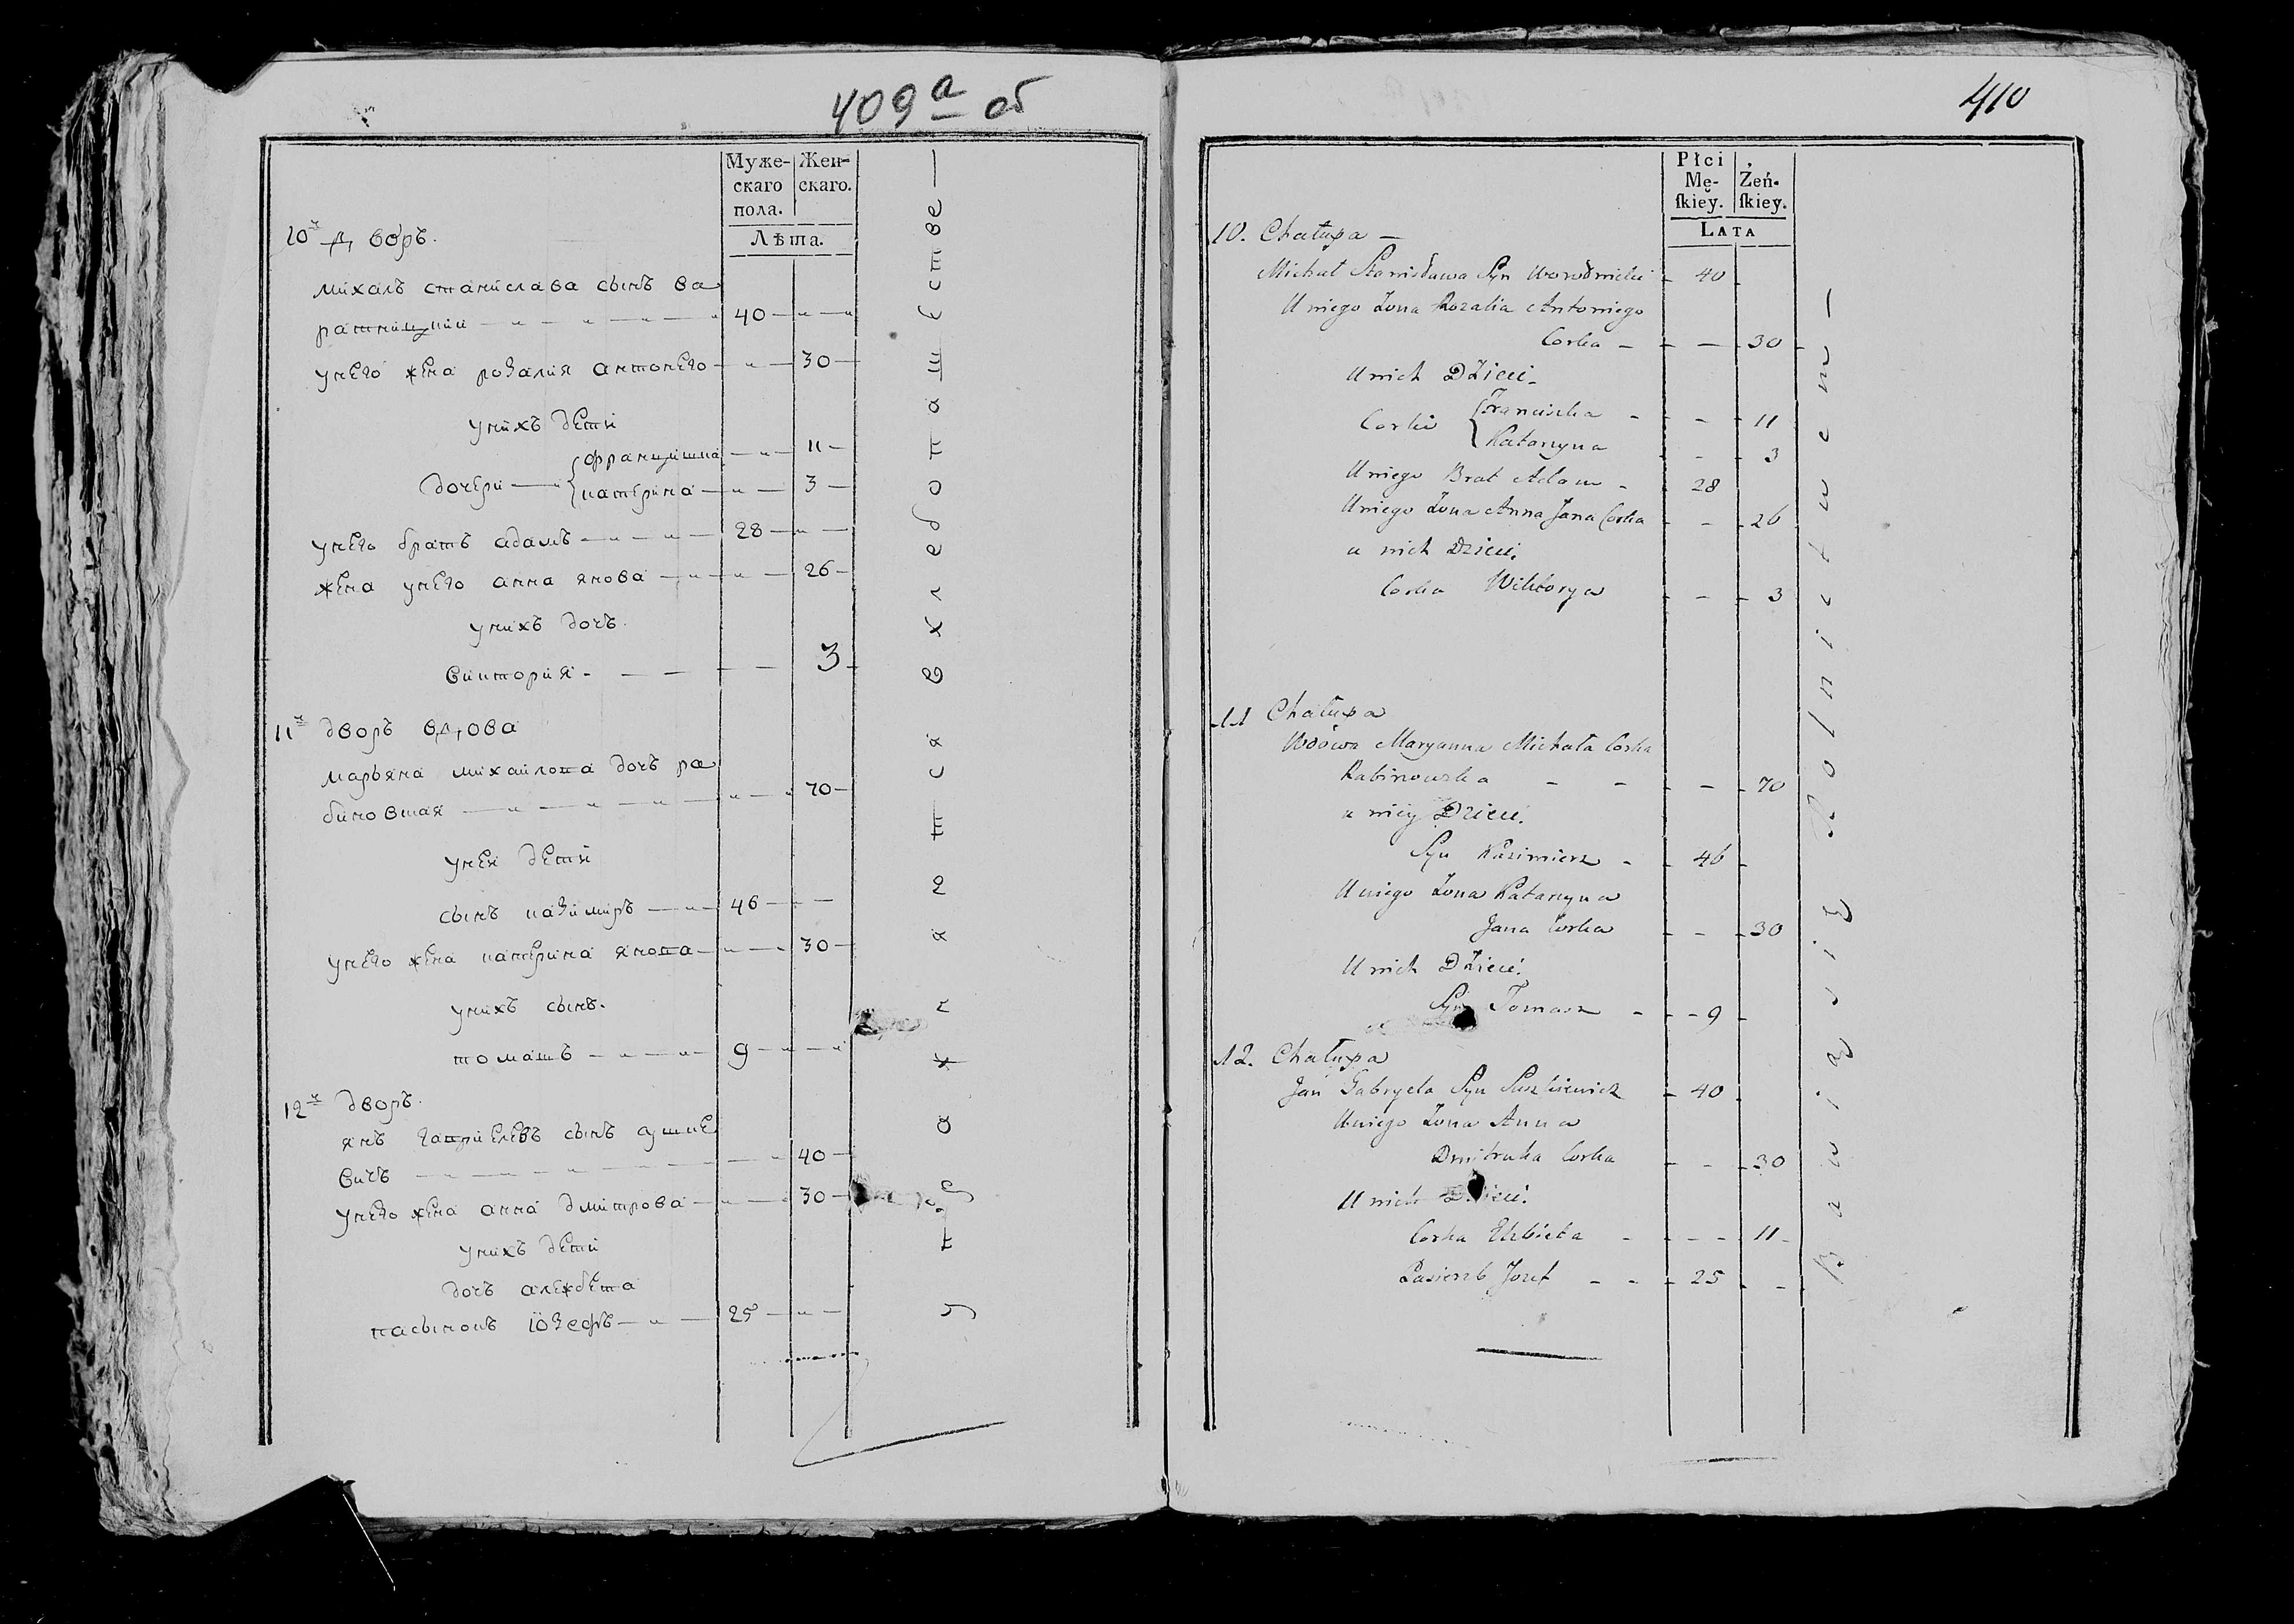 409а об
Муже-
скаго
пола.
Жен-
скаго.
Лѣта.
10й дворъ.
михалъ станислава сынъ ва
ратницкии 40
унего жена розалия антонего 30
унихъ дети
дочери францишка 11
катерина 3
унего братъ адамъ 28
жена унего анна янова 26
унихъ дочъ.
виктория 3
11й дворъ вдова
марьяна михаилова дочъ ра
биновская 70
унеи дети
сынъ казимиръ 46
унего жена катерина янова 30
унихъ сынъ.
томашъ 9
12й дворъ.
янъ гаприелевъ сынъ сушке
вичъ 40
унего жена анна дмитрова 30
унихъ дети
дочъ алежбета
пасынокъ іозефъ 25
вхлебопашестве
410
Płci
Mę-
ſkiey.
Żeń-
ſkiey.
LATA
10. Chałupa
Michał Stanisława Syn Worodnicki 40
Uniego Żona Rozalia Antoniego
Corka 30
Unich Dzieci
Corki Franciszka 11
Katarzyna 3
Uniego Brat Adam 28
Uniego Żona Anna Jana Corka 26
u nich Dzieci.
Corka Wiktorya 3
11 Chałupa
Wdowa Maryanna Michała Corka
Rabinowska 70
u niey Dzieci.
Syn Kazimierz 46
Uniego Żona Katarzyna
Jana Corka 30
Unich Dzieci.
Syn Tomasz 9
12. Chałupa
Jan Gabryela Syn Suszkiewicz 40
Uniego Żona Anna
Dmitruka Corka 30
Unich Dzieci.
Corka Elzbieta 11
Pasierzb Jozef 25
Bawią się Rolnictwem